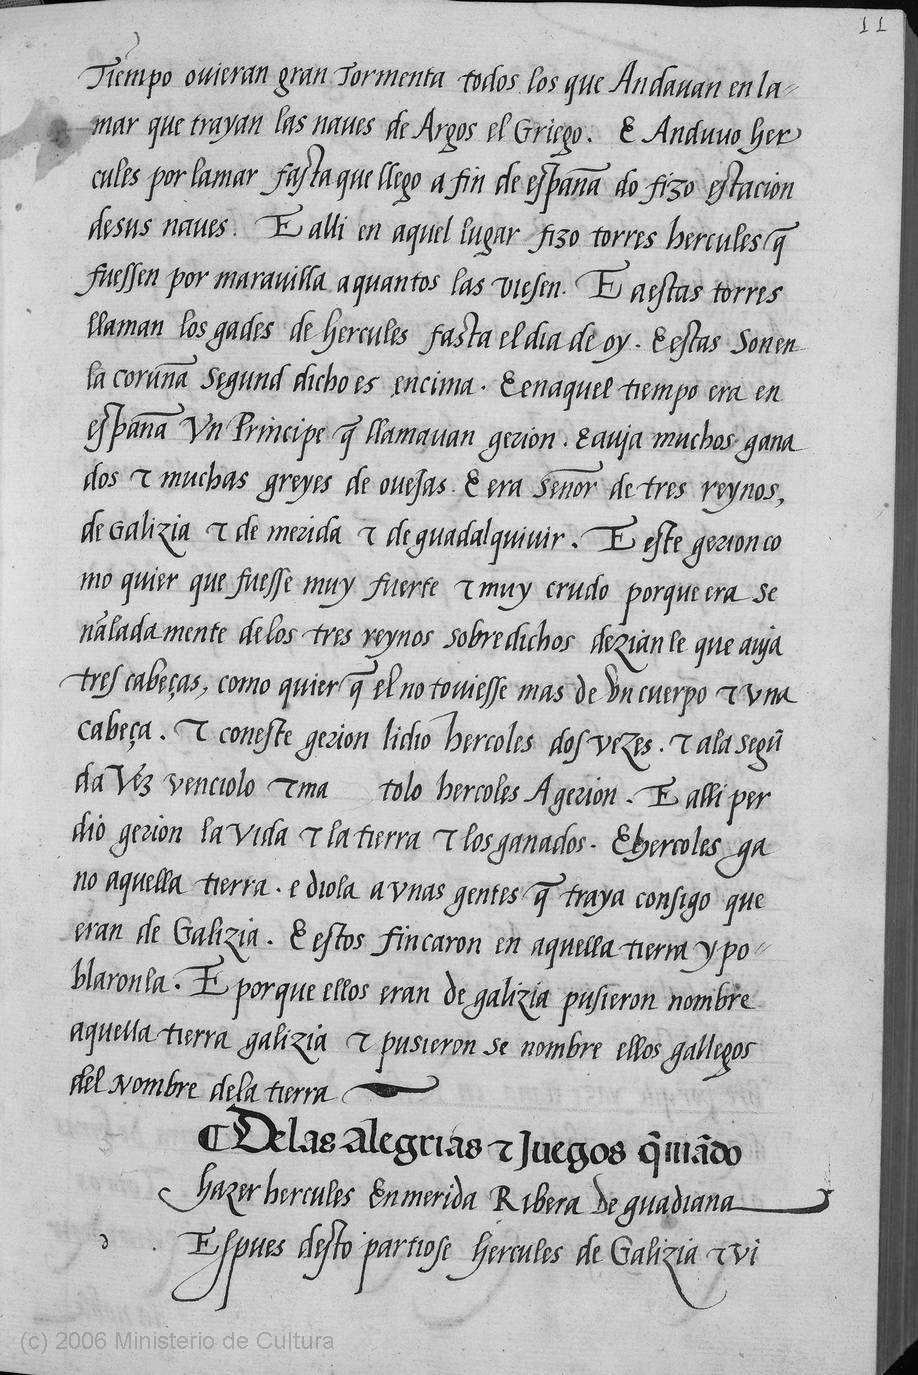 11
Tiempo ouieran gran Tormenta todos los que Andauan en la=
mar que trayan las naves de Argos el Griego. E Anduuo her
cules por la mar fasta que llego a fin de espãna do fizo estacion
de sus naves. E alli en aquel lugar fizo torres hercules q̃
fuessen por maravilla a quantos las viesen. E aestas torres
llaman los gades de hercules fasta el dia de oy. E estas Son en
la coruña Segund dicho es encima. E en aquel tiempo era en
españa Vn Principe q̃ llamauan gerion. E auja muchos gana
dos τ muchas greyes de ouejas. E era Señor de tres reynos,
de Galizia τ de merida τ de guadalquivir. E este gerion co
mo quier que fuesse muy fuerte τ muy crudo porque era Se
ñalada mente de los tres reynos sobre dichos dezian le que auja
tres cabeças, como quier q̃ el no touiesse mas de vn cuerpo τ vna
cabeça. τ con este gerion lidio hercoles dos vezes. τ a la segũ
da Vez venciolo τ ma tolo hercoles A gerion. E alli per
dio gerion la vida τ la tierra τ los ganados. E hercoles ga
no aquella tierra. e diola a vnas gentes q̃ traya consigo que
eran de Galizia. E estos fincaron en aquella tierra y po=
blaronla. E porque ellos eran de galizia pusieron nombre
aquella tierra galizia τ pusieron se nombre ellos gallegos
del Nombre de la tierra
¶ De las alegrias τ Juegos q̃ mãdo
hazer hercules En merida Ribera de guadiana
d Espues desto partiose hercules de Galizia τ vi
(c) 2006 Ministerio de Cultura